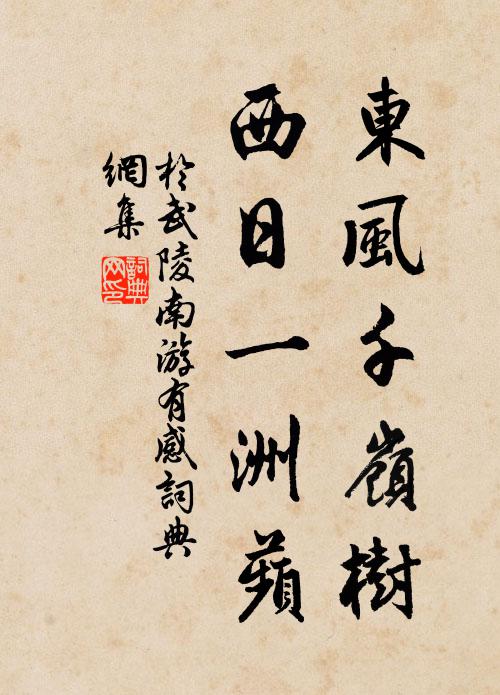 東風千嶺樹
西日一洲蘋
於武陵南游有感詞典
網集
詞典
网印